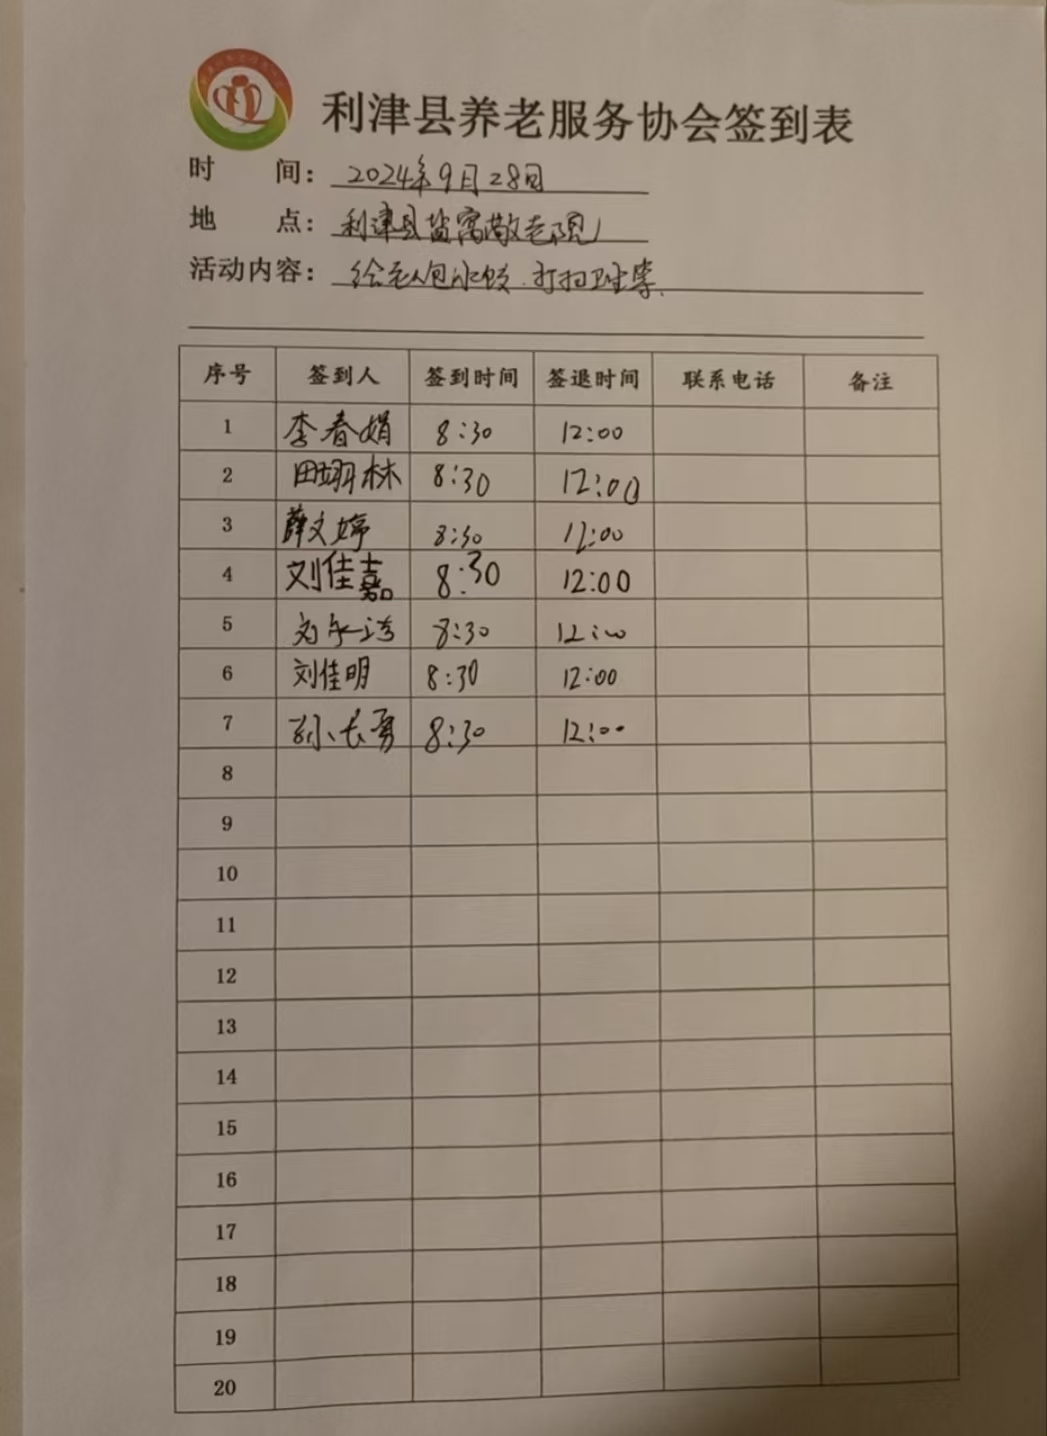 利津县养老服务协会签到表
时 间：2024年9月28日
地 点：利津县盐窝敬老院
活动内容：给老人包水饺、打扫卫生等.
序号 签到人 签到时间 签退时间 联系电话 备注
1 李春娟 8:30 12:00
2 田翊林 8:30 12:00
3 薛文婷 8:30 12:00
4 刘佳嘉 8:30 12:00
5 8:30 12:00
6 刘佳明 8:30 12:00
7 孙长勇 8:30 12:00
8
9
10
11
12
13
14
15
16
17
18
19
20